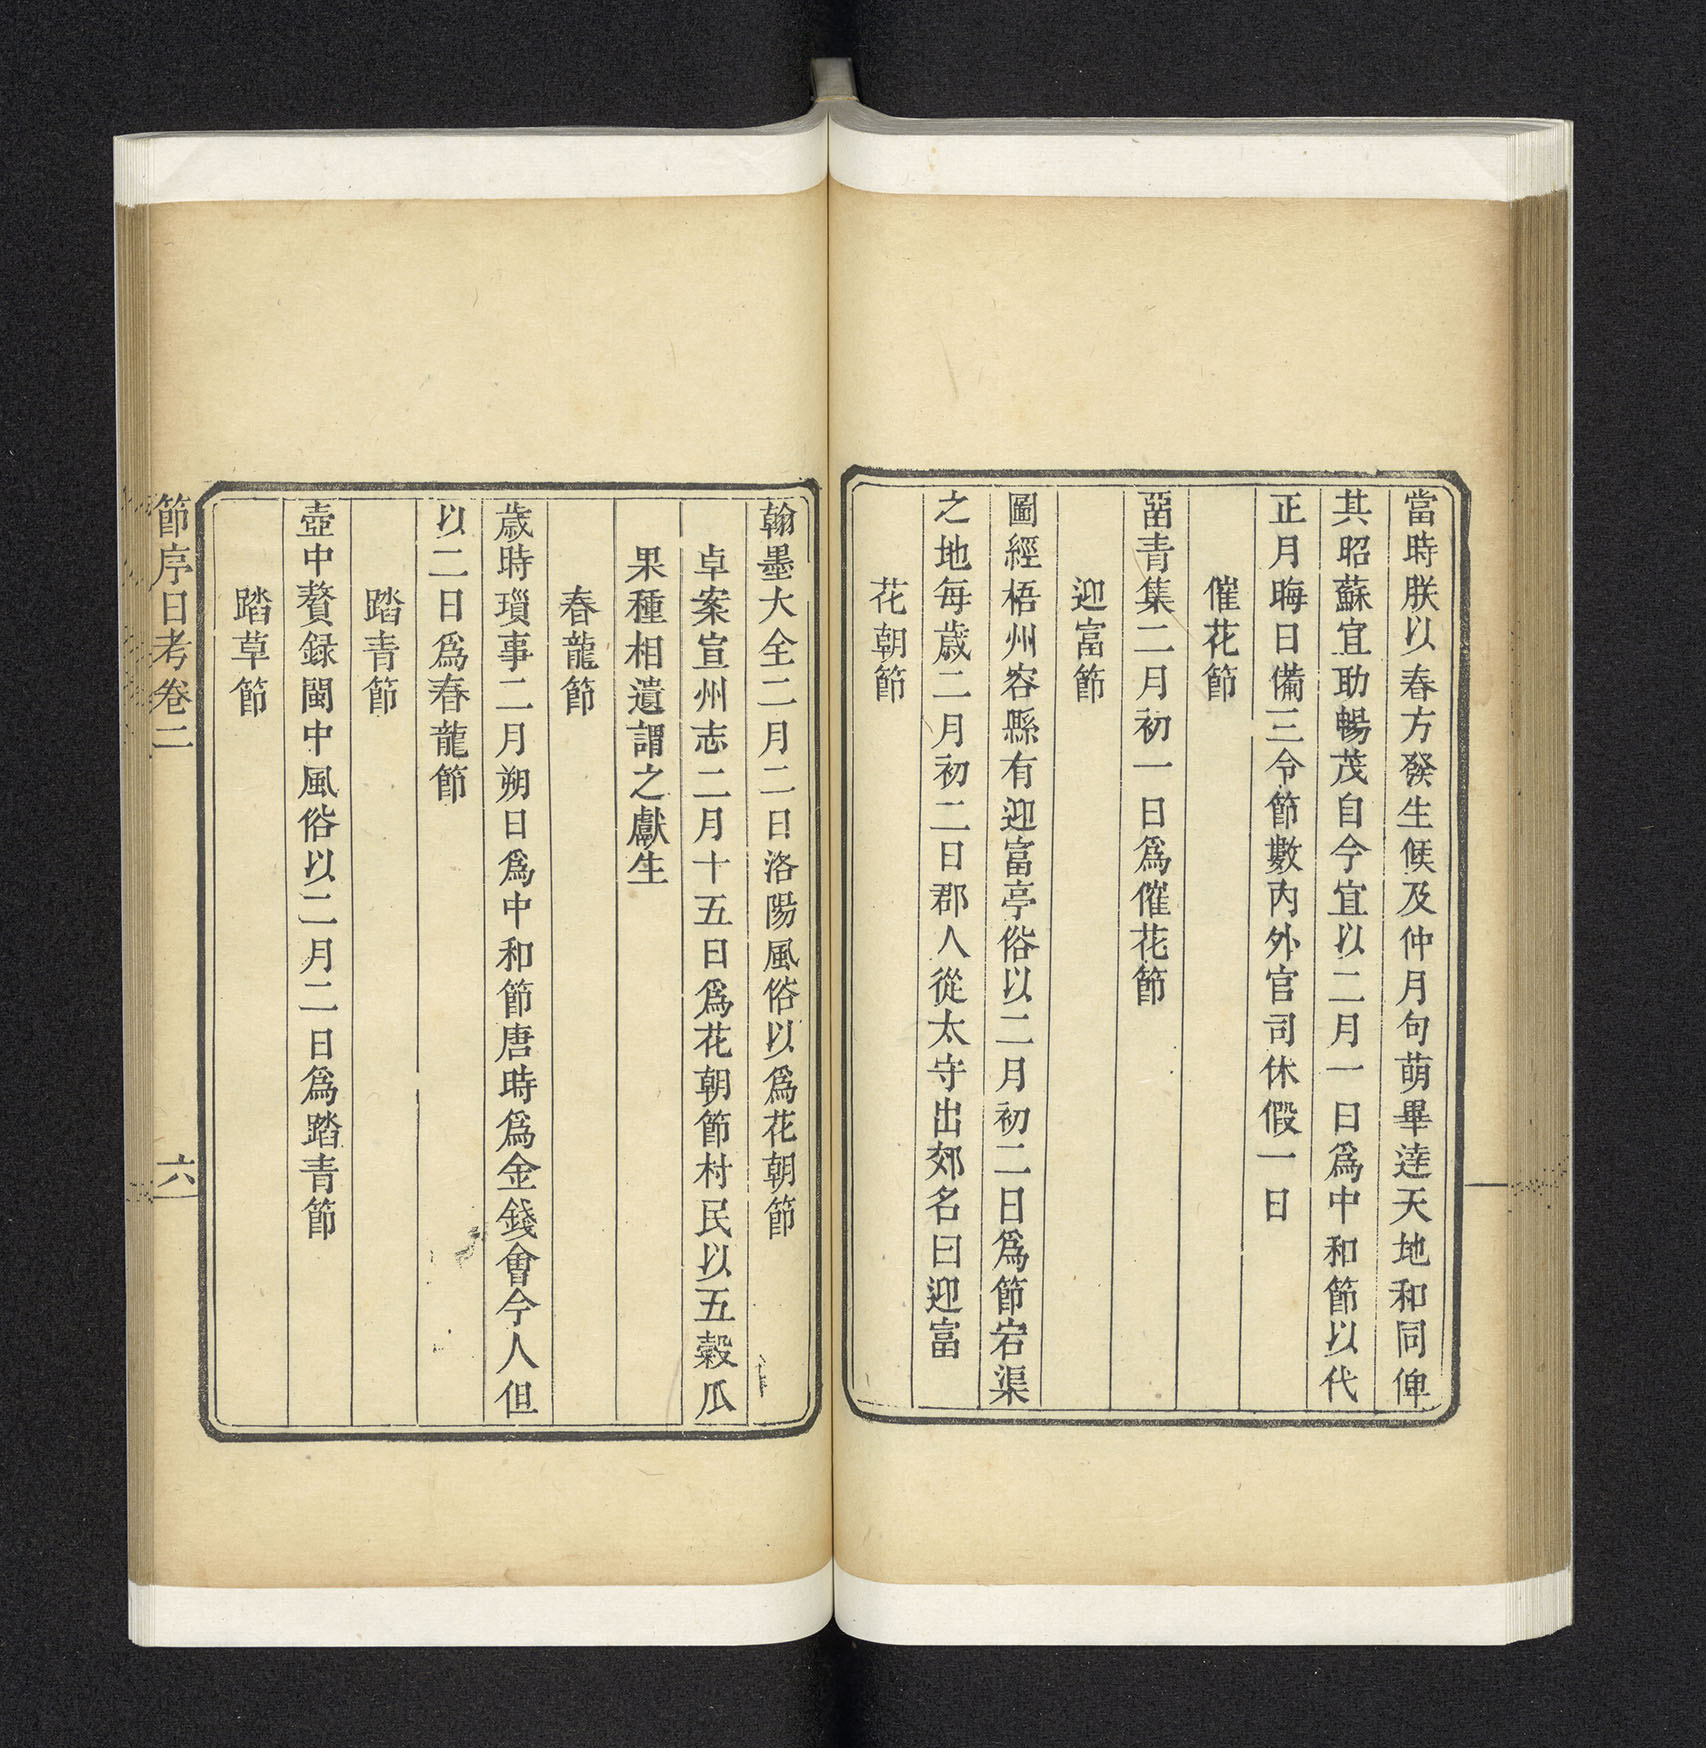 當時朕以春方發生候及仲月句萌畢達天地和同俾
其昭蘇宜助暢茂自今宜以二月一日爲中和節以代
正月晦日備三令節數內外官司休假一日
催花節
菑青集二月初一日爲催花節
迎富節
圖經梧州容縣有迎富亭俗以二月初二日爲節宕渠
之地每歲二月初二日郡人從太守出郊名曰迎富
花朝節
翰墨大全二月二日洛陽風俗以爲花朝節
卓案宣州志二月十五日爲花朝節村民以五穀瓜
果種相遺謂之獻生
春龍節
歲時瑣事二月朔日爲中和節唐時爲金錢會今人但
以二日爲春龍節
踏青節
壺中贅録閩中風俗以二月二日爲踏青節
踏草節
節序日考卷二
六